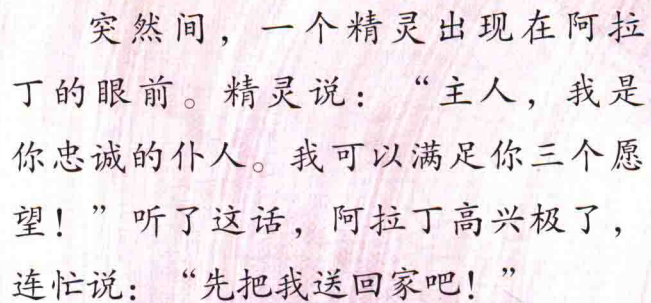 突然间，一个精灵出现在阿拉
丁的眼前。精灵说：“主人，我是
你忠诚的仆人。我可以满足你三个愿
望！”听了这话，阿拉丁高兴极了，
连忙说：“先把我送回家吧！”